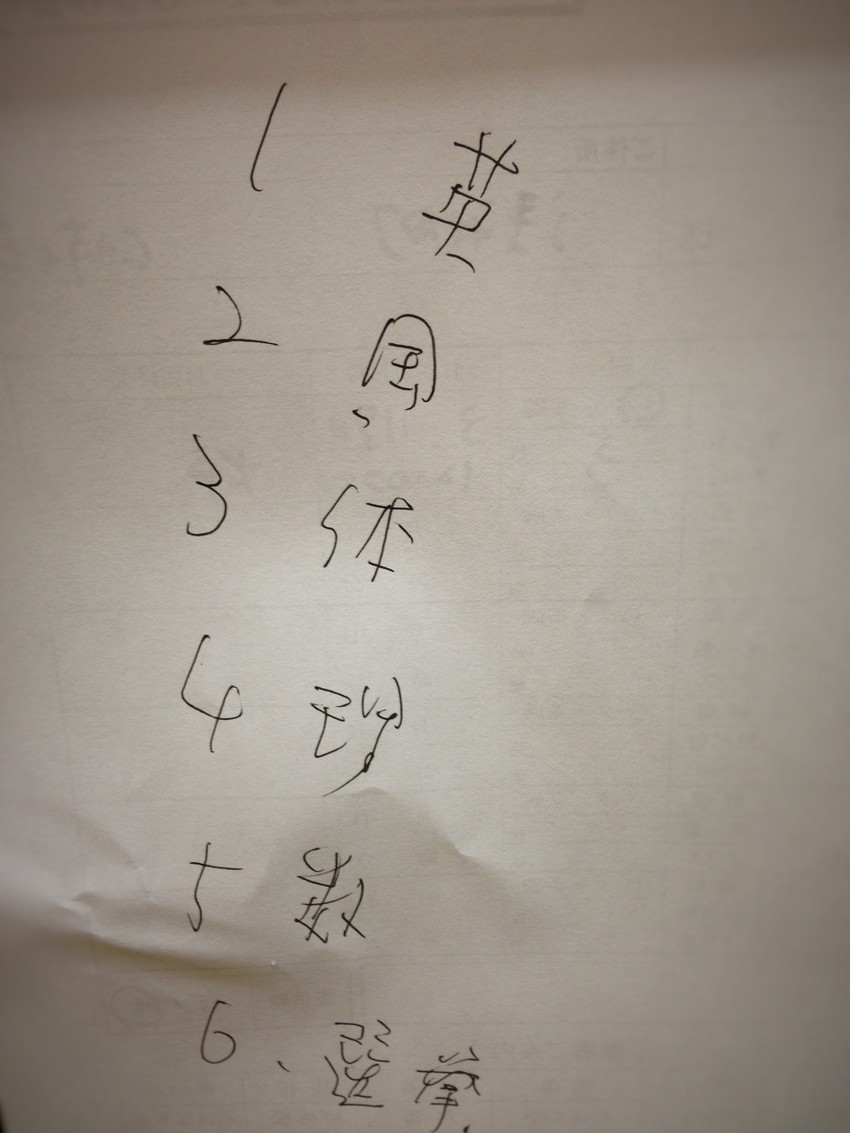 1 英
2 国
3 体
4
5 数
6、選挙